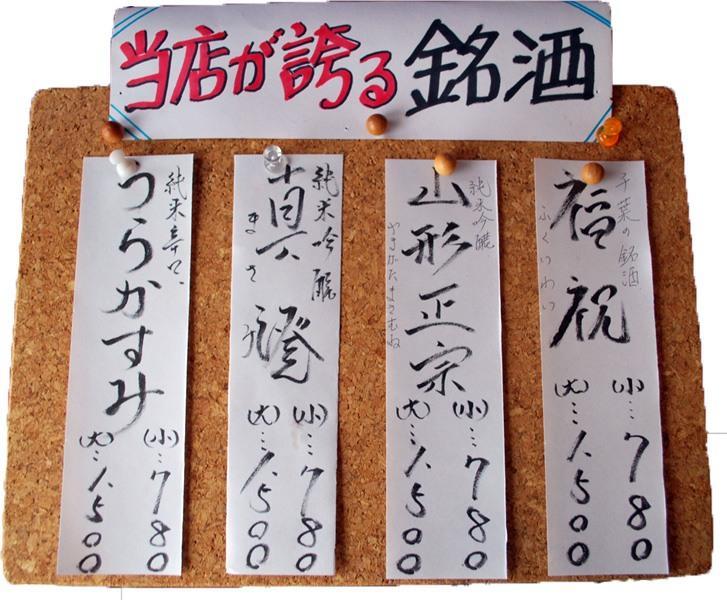 当店が誇る銘酒
千葉の銘酒
福祝
ふくいわい
(小)…780
(大)…1.500
純米吟醸
山形正宗
やまがたまさむね
(小)…780
(大)…1.500
純米吟醸
真澄
(小)…780
(大)…1.500
純米辛口
うらかすみ
(小)…780
(大)…1.500